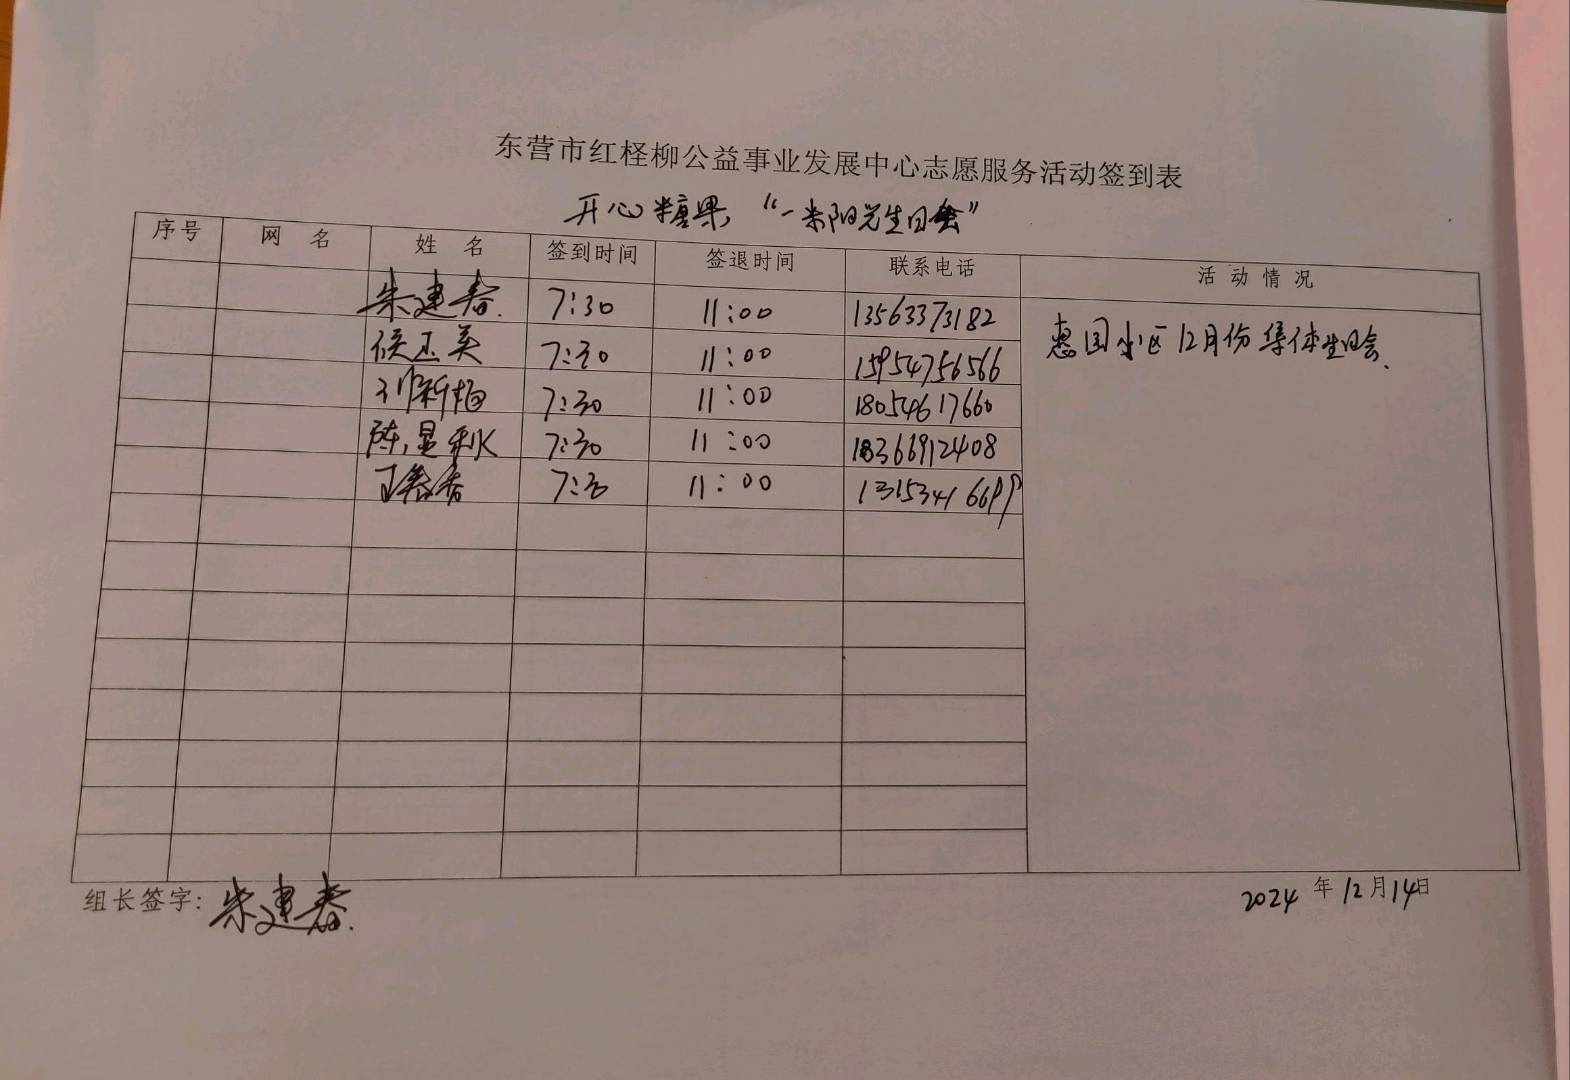 东营市红柽柳公益事业发展中心志愿服务活动签到表
开心糖果，“一米阳光生日会”
序号 网 名 姓 名 签到时间 签退时间 联系电话 活动情况
朱建春. 7:30 11:00 13563373182 惠园小区12月份集体生日会.
侯玉英 7:30 11:00 15954756566
刘新梅 7:30 11:00 18054617660
陈显秋 7:30 11:00 18366912408
王春香 7:30 11:00 13153416699
组长签字: 朱建春. 2024 年 12 月 14 日